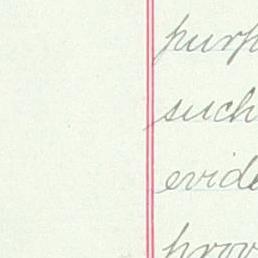 purp
such
evide
prov